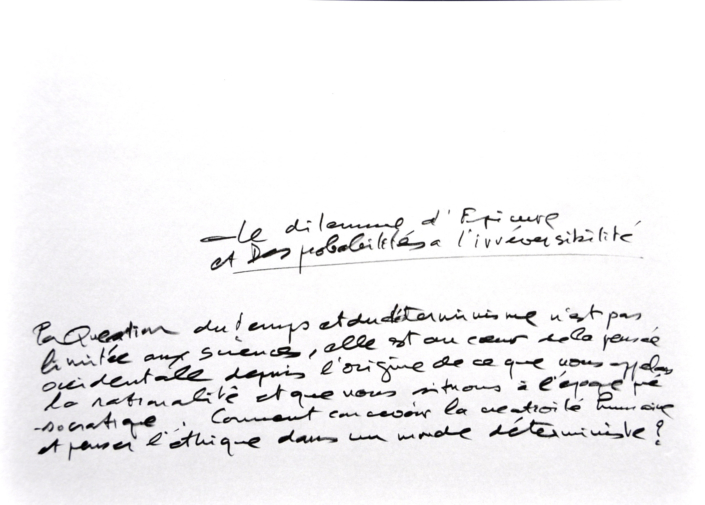 — Le dilemme d'Epicure
et Des probabilités a l'irréversibilité
La Question du temps et du déterminisme n'est pas
limitée aux sciences, elle est au cœur de la pensée
occidentale depuis l'origine de ce que nous appelons
la rationalité et que nous situons à l'époque pré
-socratique. Comment concevoir la créativité humaine
et penser l'éthique dans un monde déterministe ?